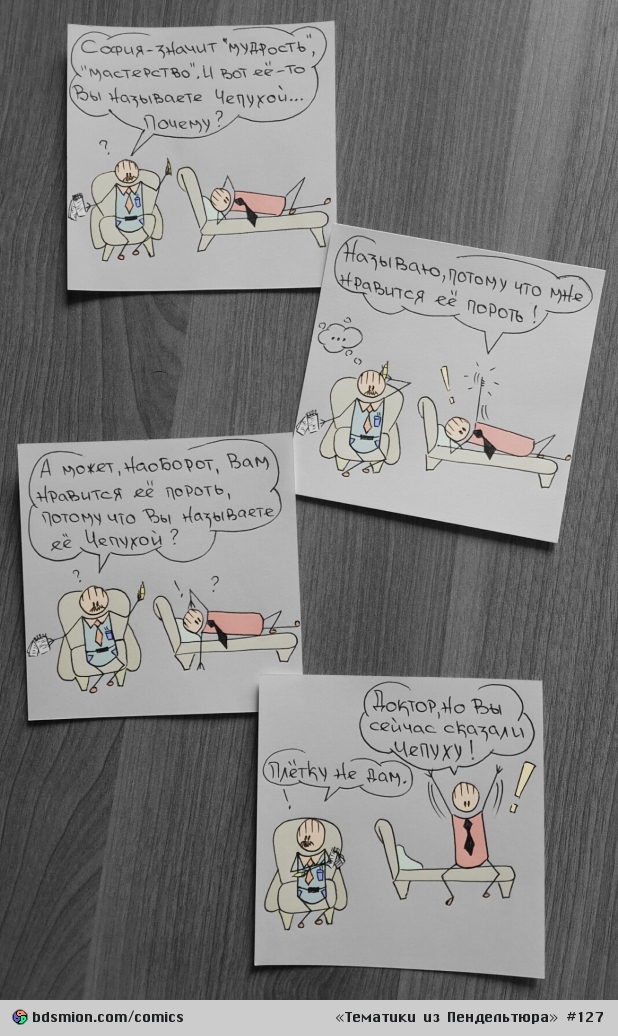 София-значит "мудрость",
"мастерство". И вот её-то
Вы называете Чепухой...
Почему?
?
Называю, потому что мне
нравится её пороть!
...
!
А может, наоборот, Вам
нравится её пороть,
потому что Вы называете
её Чепухой?
?
! ?
Доктор, но Вы
сейчас сказали
Чепуху!
Плётку не дам.
!
!
bdsmion.com/comics «Тематики из Пендельтюра» #127